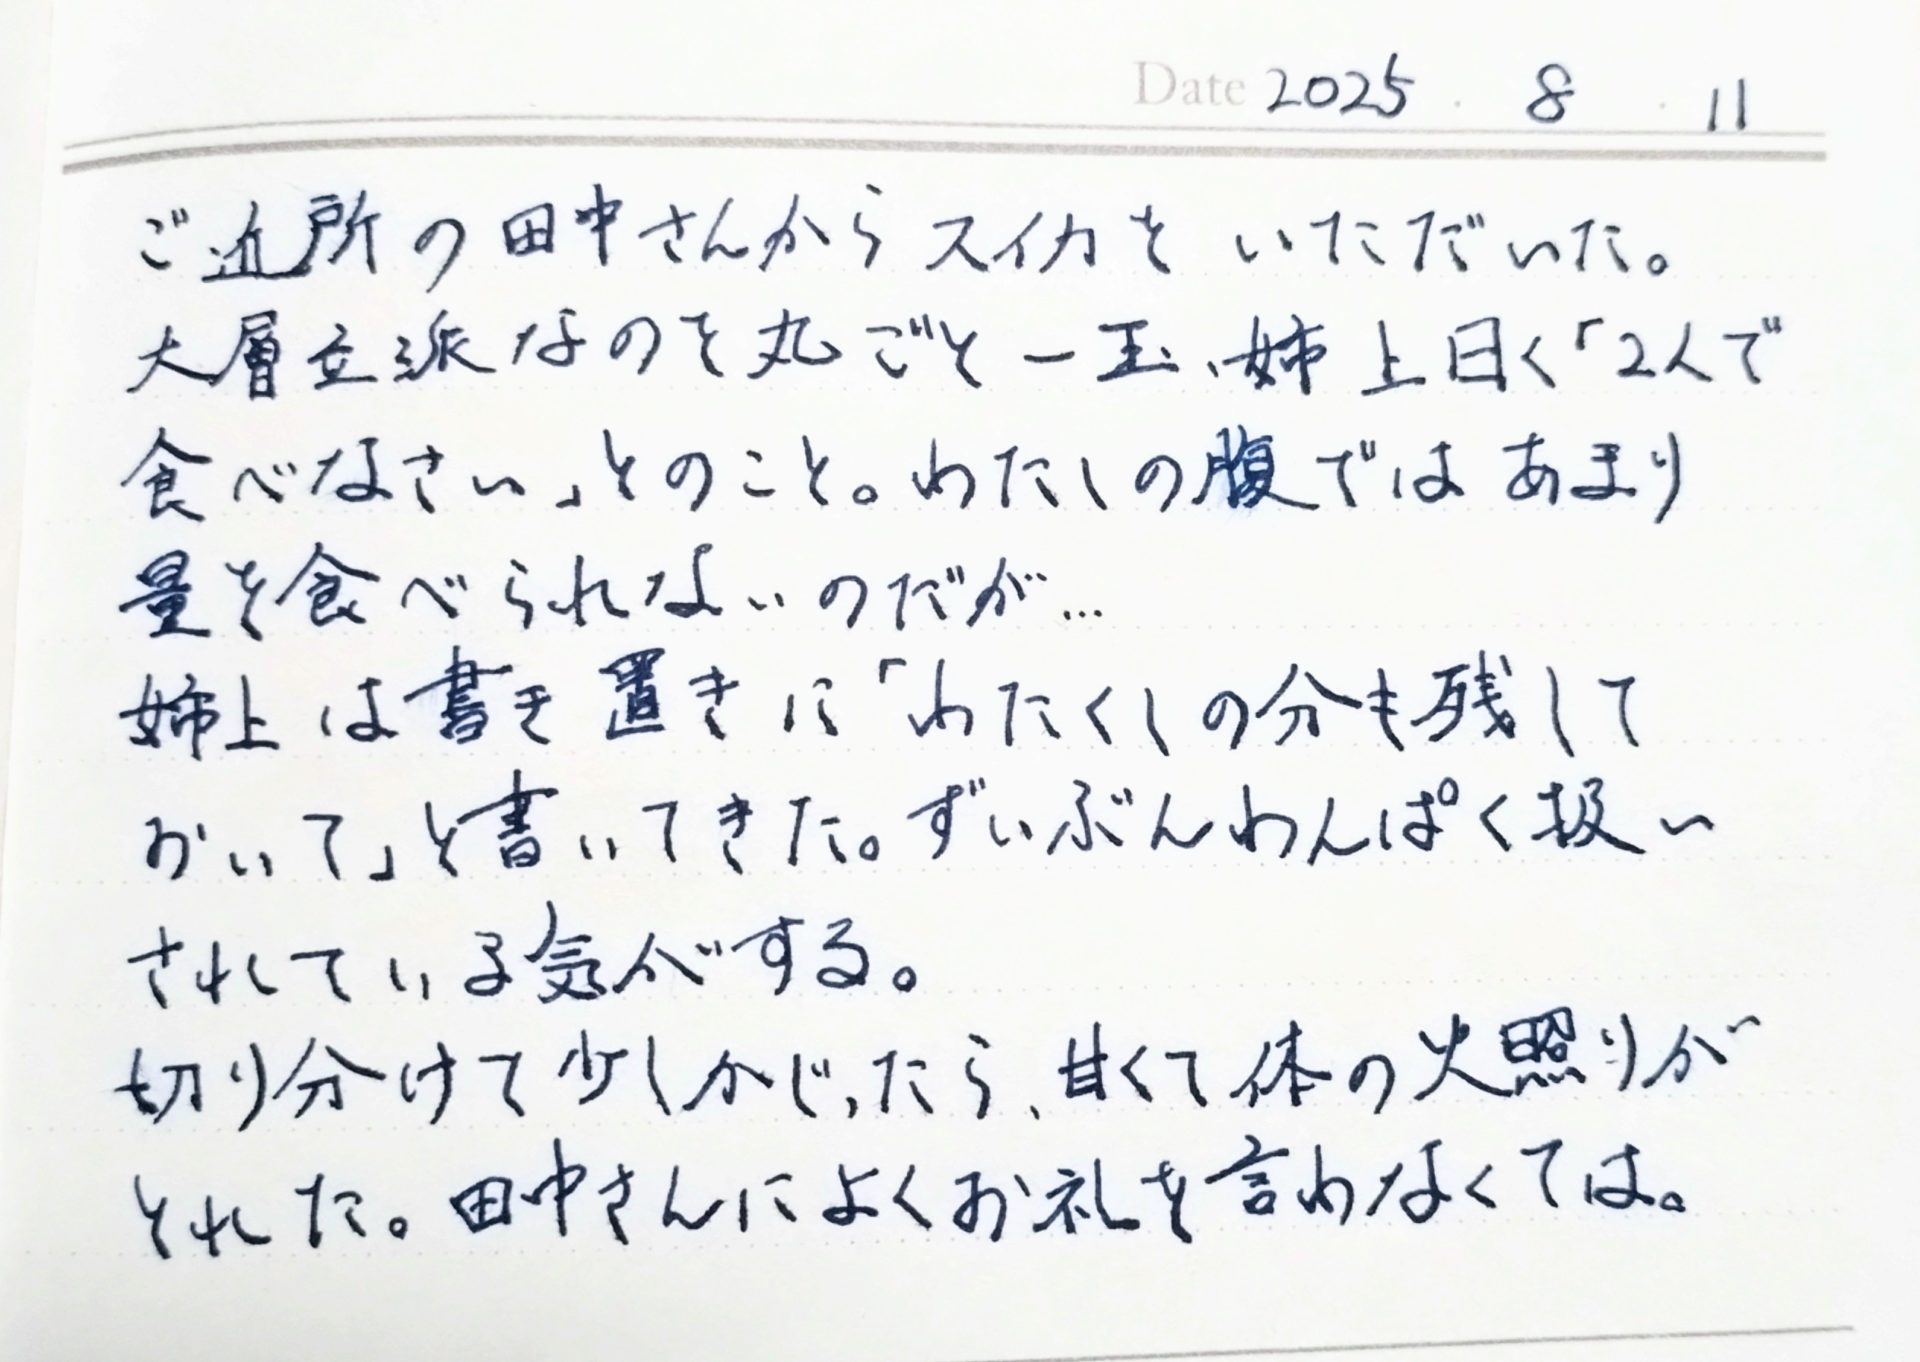 Date 2025 . 8 . 11
ご近所の田中さんからスイカをいただいた。
大層立派なのを丸ごと一玉、姉上曰く「2人で
食べなさい」とのこと。わたしの腹ではあまり
量を食べられないのだが…
姉上は書き置きに「わたくしの分も残して
おいて」と書いてきた。ずいぶんわんぱく扱い
されている気がする。
切り分けて少しかじったら、甘くて体の火照りが
とれた。田中さんによくお礼を言わなくては。